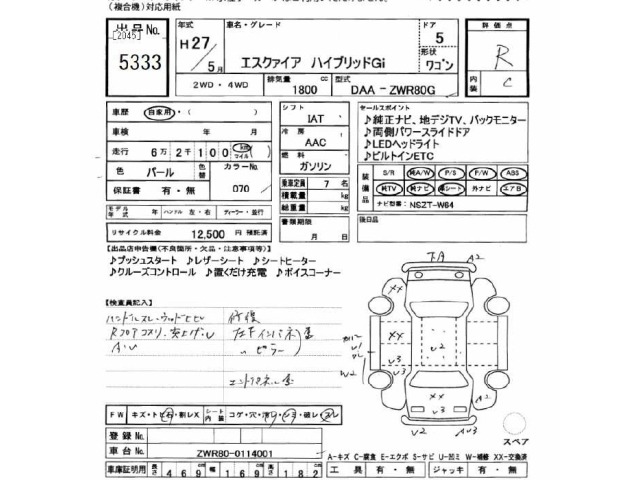 (複合機)対応用紙
出品No.
[2045]
5333
年式
H27/5月
車名・グレード
エスクァイア ハイブリッドGi
ドア
5
形状
ワゴン
評価点
R
内装
C
2WD・4WD
排気量
1800 cc
型式
DAA-ZWR80G
車歴 自家用・( )
車検 年 月
走行 6万2千100 km マイル
色 パール
色替
カラーNo. 070
保証書 有・無
モデル年式 年 ハンドル 左・右 ディーラー・並行
リサイクル料金 12,500 円 預託済
シフト
IAT
冷房
AAC
燃料
ガソリン
乗車定員 7 名
積載量 kg
総重量 kg
書類期限
月 日
セールスポイント
♪純正ナビ、地デジTV、バックモニター
♪両側パワースライドドア
♪LEDヘッドライト
♪ビルトインETC
装備品
S/R 純A/W P/S P/W ABS
純TV 純ナビ 革シート 外ナビ エアB
ナビ型番: NSZT-W64
後日品
【出品店申告欄(不良箇所・欠品・注意事項等)】
♪プッシュスタート ♪レザーシート ♪シートヒーター
♪クルーズコントロール ♪置くだけ充電 ♪ボイスコーナー
【検査員記入】
修復
A・U
F W キズ・トビ石・割レX
シート内装 コゲ・穴・汚リ・シミ・破レ・スレ
登録No.
車台No. ZWR80-0114001
車庫証明用 長さ 469 幅 169 高さ 182
A-キズ C-腐食 E-エクボ S-サビ U-凹ミ W-補修 XX-交換済
工具 有・無 ジャッキ 有・無
スペア
下A
A2
XX
A
XX
V2
V3
V3
W2
XX
A
V2
AV3